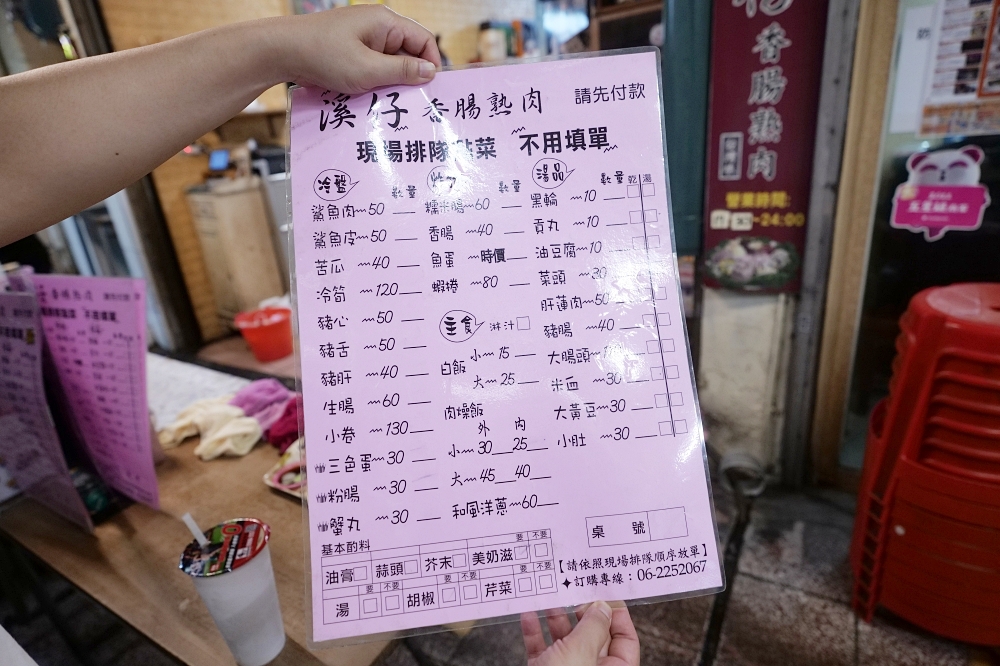 溪仔 香腸熟肉 請先付款
現場排隊點菜 不用填單
冷盤 數量
鯊魚肉~50
鯊魚皮~50
苦瓜~40
冷筍~120
豬心~50
豬舌~50
豬肝~40
生腸~60
小卷~130
三色蛋~30
粉腸~30
蟹丸~30
數量
糯米腸~60
香腸~40
魚蛋~時價
蝦捲~80
主食 淋汁
白飯 小~15
大~25
肉燥飯
外 內
小~30 25
大~45 40
和風洋蔥~60
湯品 數量 乾 湯
黑輪~10
貢丸~10
油豆腐~10
菜頭~30
肝蓮肉~50
豬腸~40
大腸頭
米血~30
大黃豆~30
小肚~30
桌號
基本酌料
油膏 蒜頭 芥末 美奶滋 要 不要
湯 要 不要 胡椒 要 不要 芹菜 要 不要
【請依照現場排隊順序放單】
✦訂購專線：06-2252067
香腸熟肉
營業時間:
~24:00